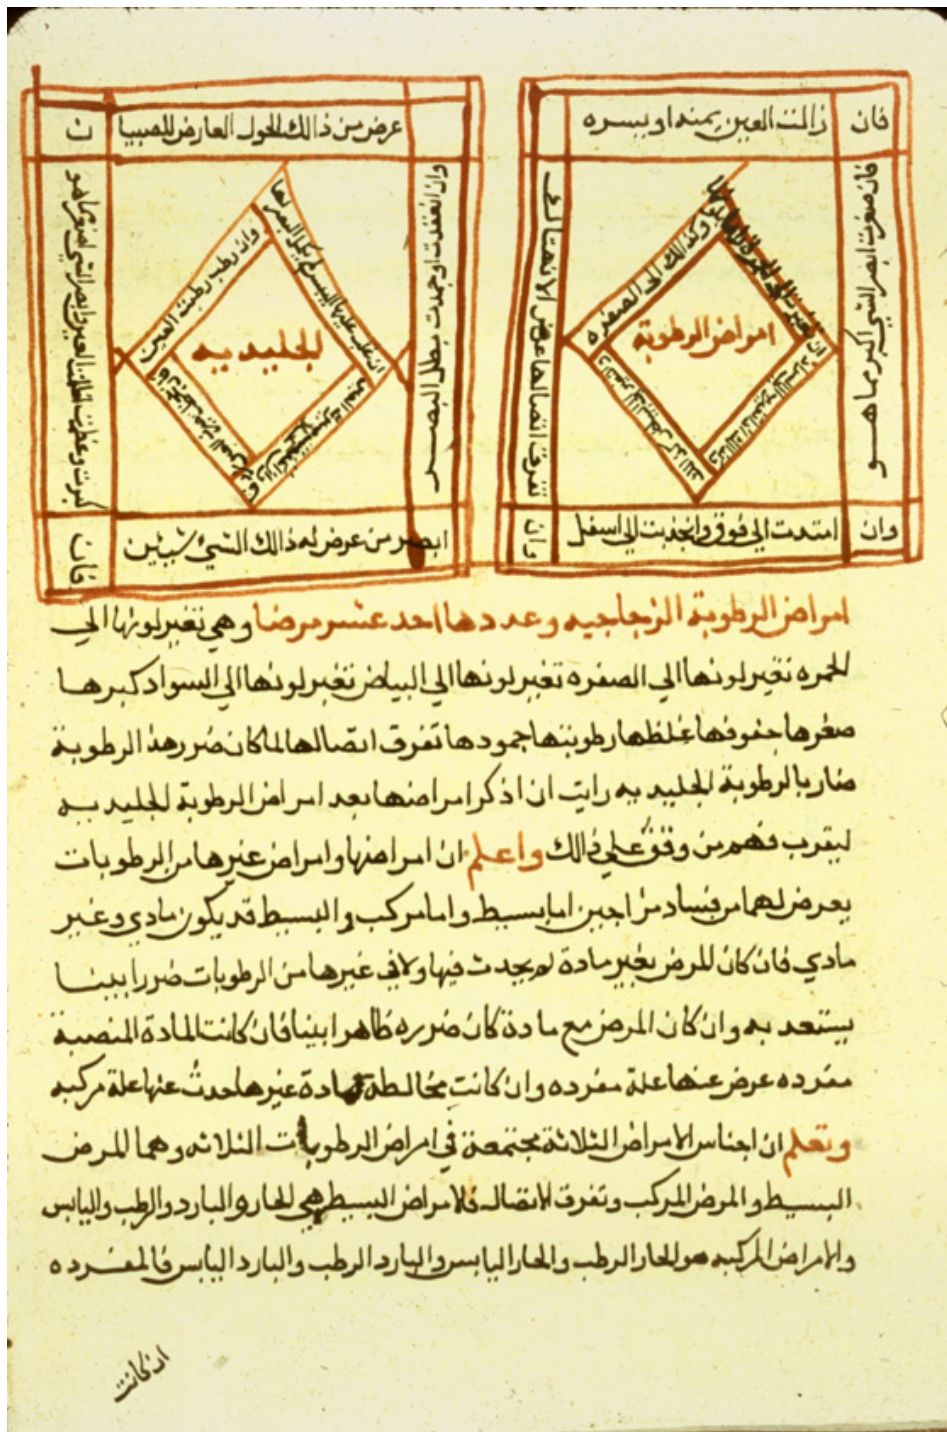 فان زالت العين يمنه او يسره
عرض من ذالك الحول العارض للصبيا ن
فان صغرت ابصر الشي اكبر مما هو
وان امتدت الي فوق وانجذبت الي اسفل
وان تفرق اتصالها عرض الانهتاك
امراض الرطوبة
وكذالك الى الصفره
وان انعقدت او جمدت بطل البصر
ابصر من عرض له ذالك الشيء شيئين
فان كبرت وعظمت اظلمت العين وابصر الشي اصغر مما هو
الجليديه
وان رطب رطبت العين
امراض الرطوبة الزجاجيه وعددها احد عشر مرضا وهي تغير لونها الي
الحمره تغير لونها الي الصفره تغير لونها الي البياض تغير لونها الي السواد كبرها
صغرها جفوفها غلظها رطوبتها جمودها تفرق اتصالها لما كان ضرر هذ الرطوبة
ضار بالرطوبة الجليديه رايت ان اذكر امراضها بعد امراض الرطوبة الجليديه
ليقرب فهم من وقف علي ذالك واعلم ان امراضها وامراض غيرها من الرطوبات
يعرض لها من فساد مزاجين اما بسيط واما مركب والبسيط قد يكون مادي وغير
مادي فان كان المرض بغير مادة لم يحدث فيها ولا في غيرها من الرطوبات ضررا بينا
يستعد به وان كان المرض مع مادة كان ضرره ظاهرا بينا فان كانت المادة المنصبة
مفرده عرض عنها علة مفرده وان كانت مخالطة لمادة غيرها حدث عنها علة مركبه
وتعلم ان اجناس الامراض الثلاثة مجتمعة في امراض الرطوبات الثلاثه وهما المرض
البسيط والمرض المركب وتفرق الاتصال فالامراض البسيط هي الحار والبارد والرطب واليابس
والامراض المركبه هو الحار الرطب والحار اليابس والبارد الرطب والبارد اليابس فالمفرده
ان كانت